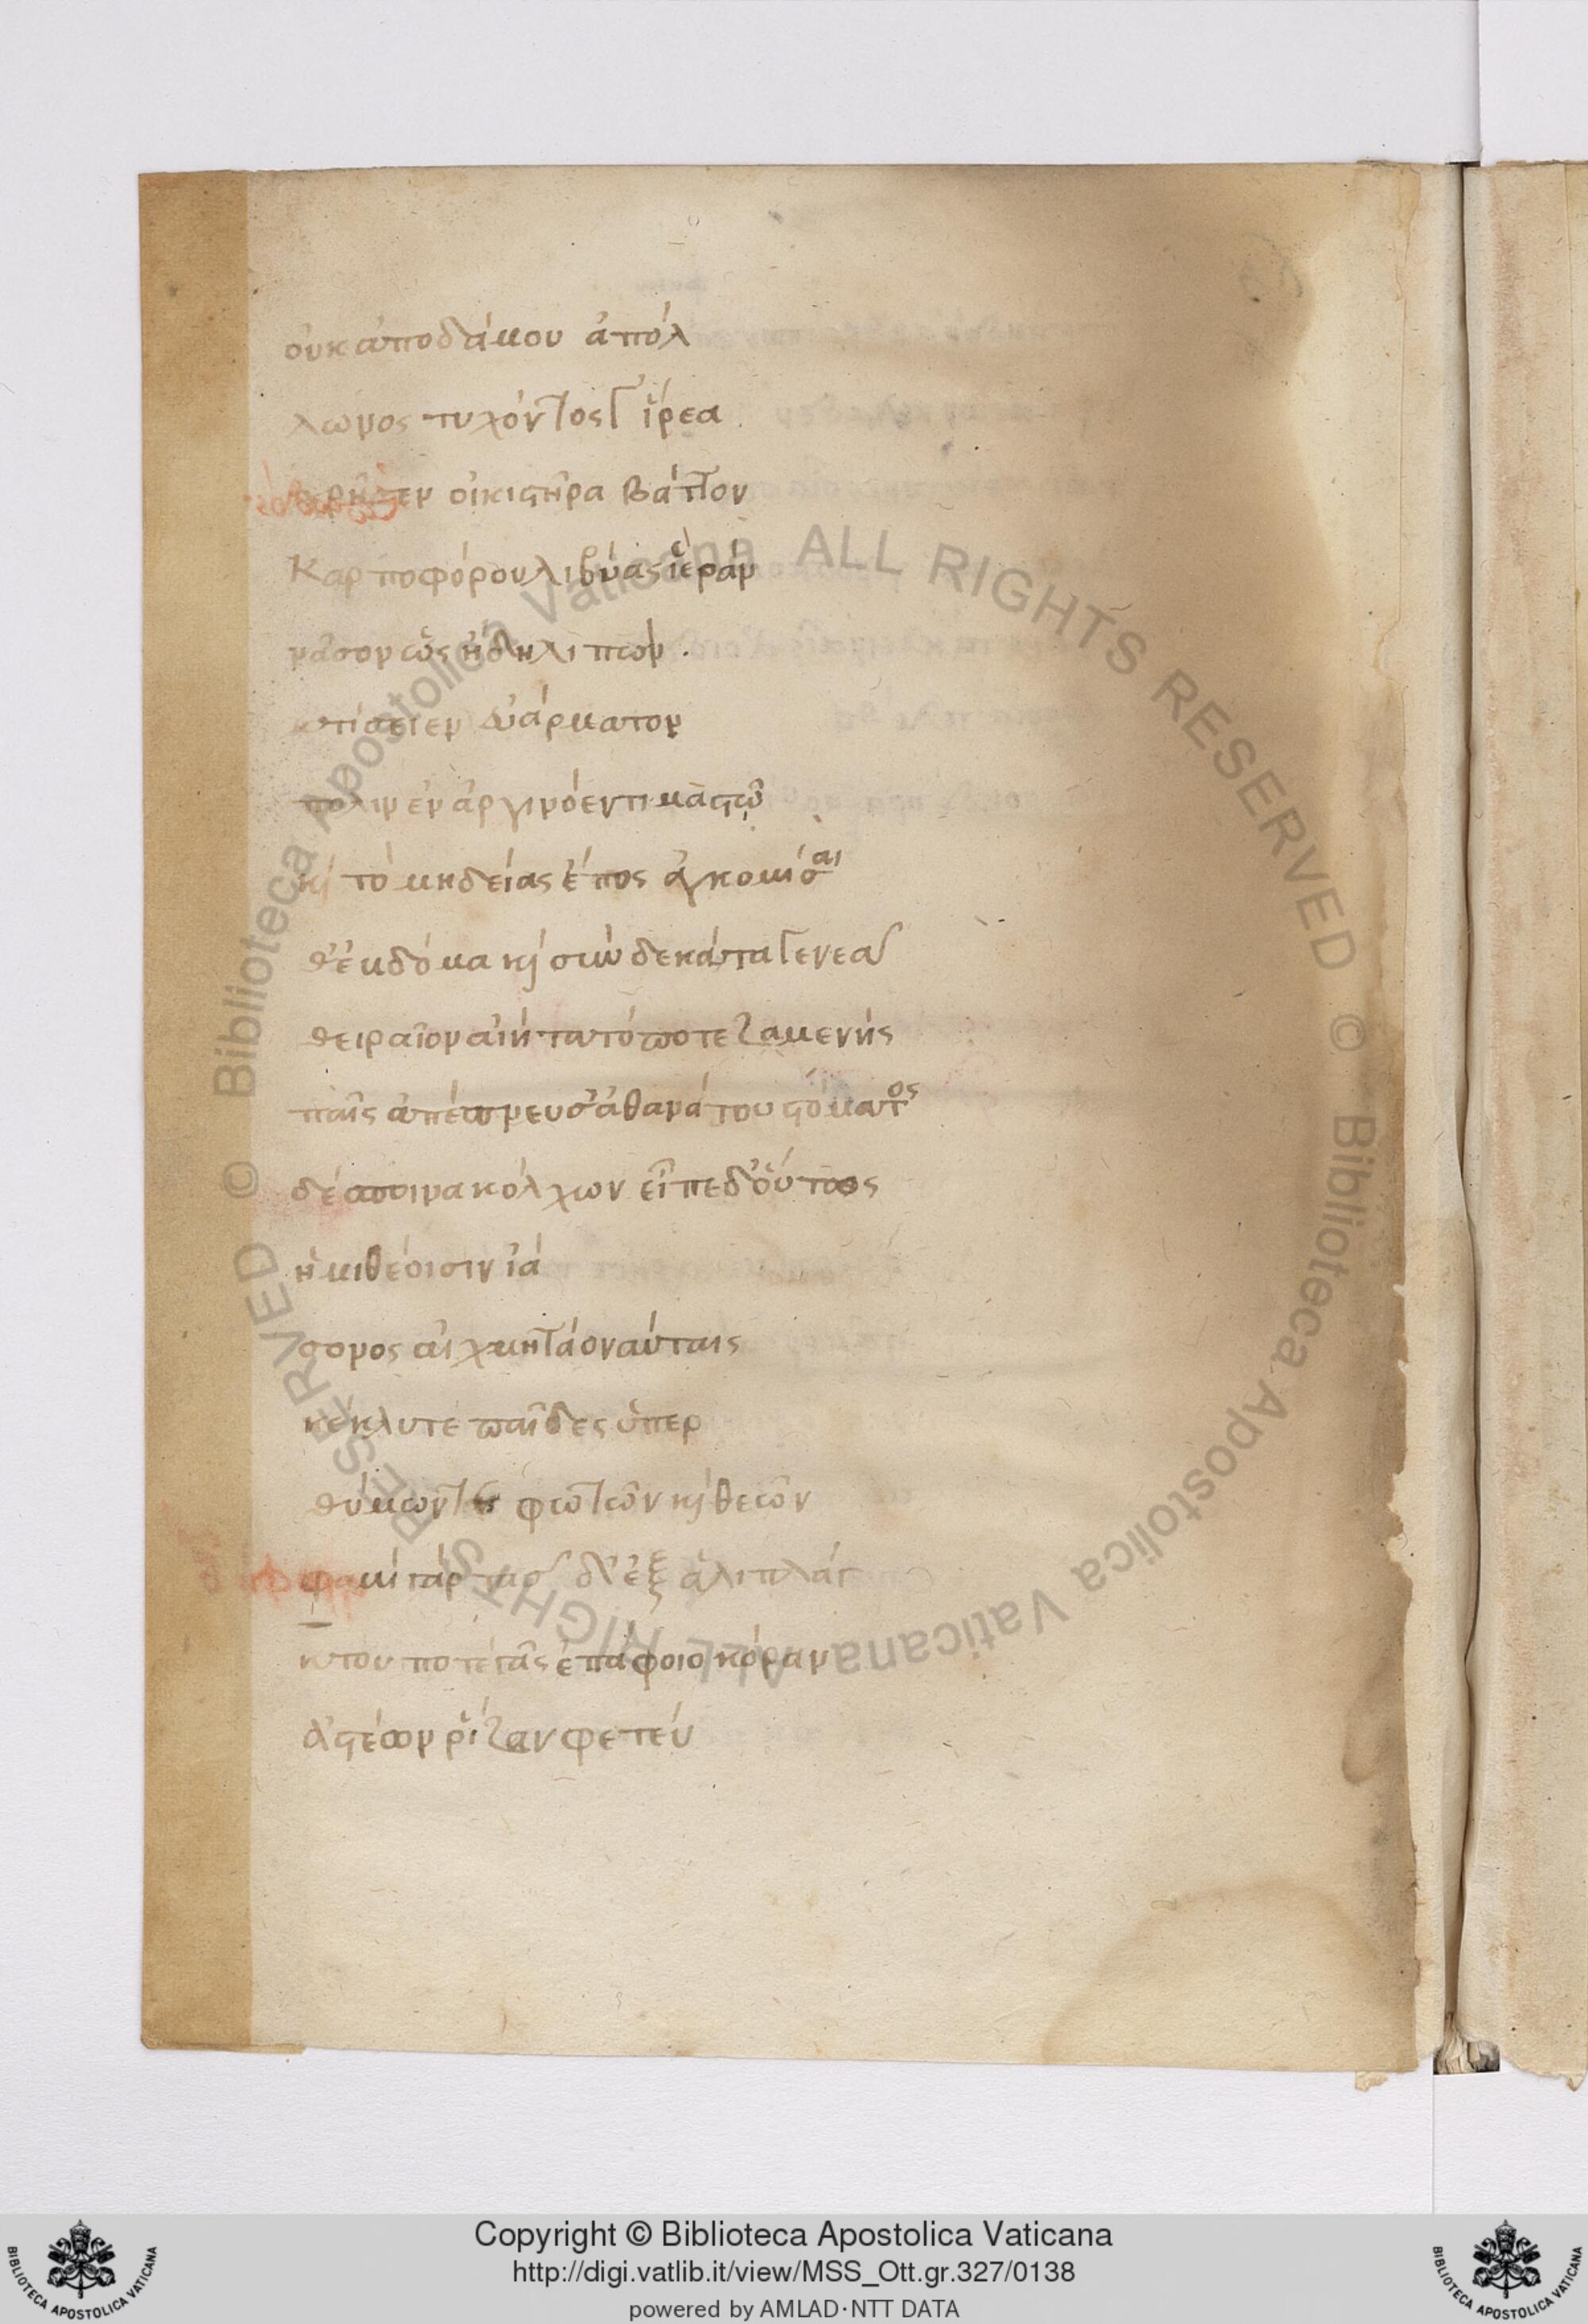 οὐκ ἀποδάμου ἀπόλ
λωνος τυχόντος γ ἱρέα
χρῆσεν οἰκιστῆρα βάττον
Καρποφόρου λιβύας ἱεράν
νᾶσον ὡς ἤδη λιπών.
κτίσειεν εὐάρματον
πόλιν ἐν ἀργινόεντι μαστῷ
καὶ τὸ μηδείας ἔπος ἀγκομίσαι
θ' ἑβδόμα καὶ σὺν δεκάτα γενεᾷ
θειραῖον αἰήτα τό ποτε ζαμενής
παῖς ἀπέπνευσ' ἀθανάτου στόματος
δέσποινα κόλχων εἶπε δ' οὕτως
ἡμιθέοισιν ἰά
σονος αἰχμητάο ναύταις
κέκλυτε παῖδες ὑπερ
θύμων τε φώτων καὶ θεῶν
φαμὶ γὰρ τᾶσδ' ἐξ ἁλιπλάγ
κτου ποτὲ γᾶς ἐπάφοιο κόραν
ἀστέων ῥίζαν φυτεύ
Copyright © Biblioteca Apostolica Vaticana
http://digi.vatlib.it/view/MSS_Ott.gr.327/0138
powered by AMLAD·NTT DATA
BIBLIOTECA APOSTOLICA VATICANA
BIBLIOTECA APOSTOLICA VATICANA
© Biblioteca Apostolica Vaticana ALL RIGHTS RESERVED
© Biblioteca Apostolica Vaticana ALL RIGHTS RESERVED